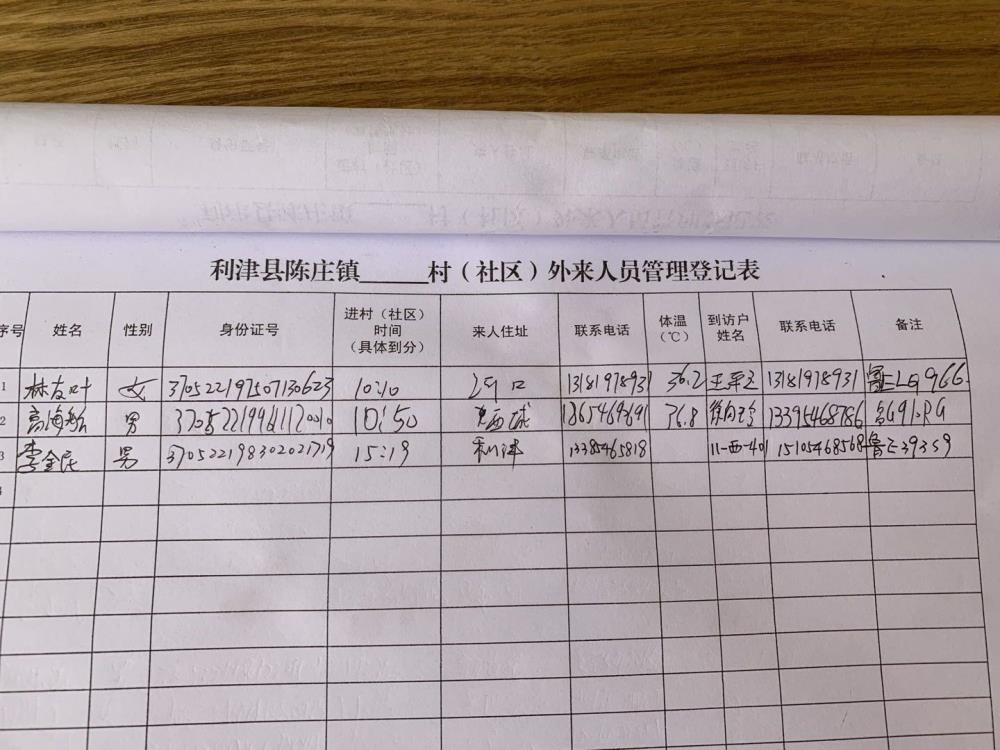 利津县陈庄镇______村（社区）外来人员管理登记表
序号 姓名 性别 身份证号 进村（社区）时间（具体到分） 来人住址 联系电话 体温（℃） 到访户姓名 联系电话 备注
1 林友叶 女 370522197507130623 10:10 河口 13181978931 36.2 13181978931
2 高海船 男 10:50 18654696691 36.8 13395468786
3 李金民 男 370522198302021719 15:19 利津 13385465818 11-西-401 15105468568 鲁E39359
4